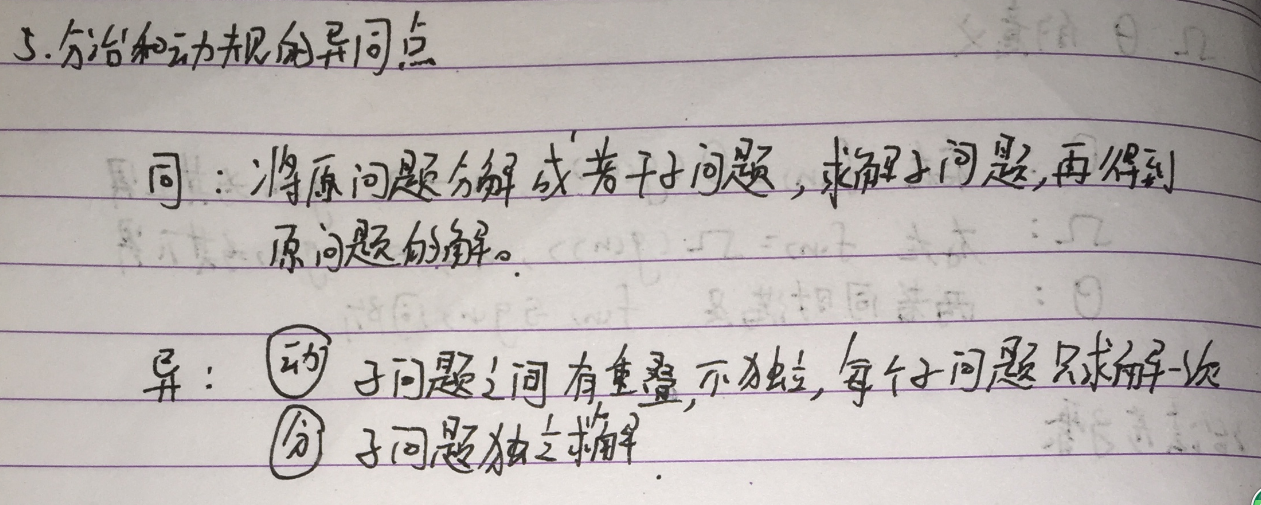 5.分治和动规的异同点
同：将原问题分解成若干子问题，求解子问题，再得到
原问题的解。
异：动 子问题之间有重叠，不独立，每个子问题只求解一次
分 子问题独立求解.